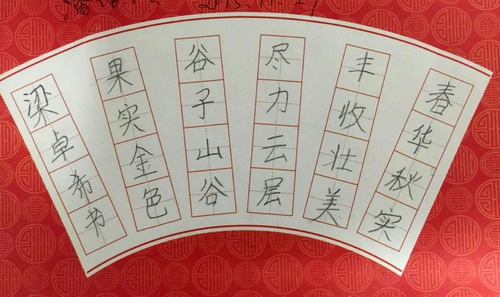 春华秋实
丰收壮美
尽力云层
谷子山谷
果实金色
梁卓希书
2015.11.29